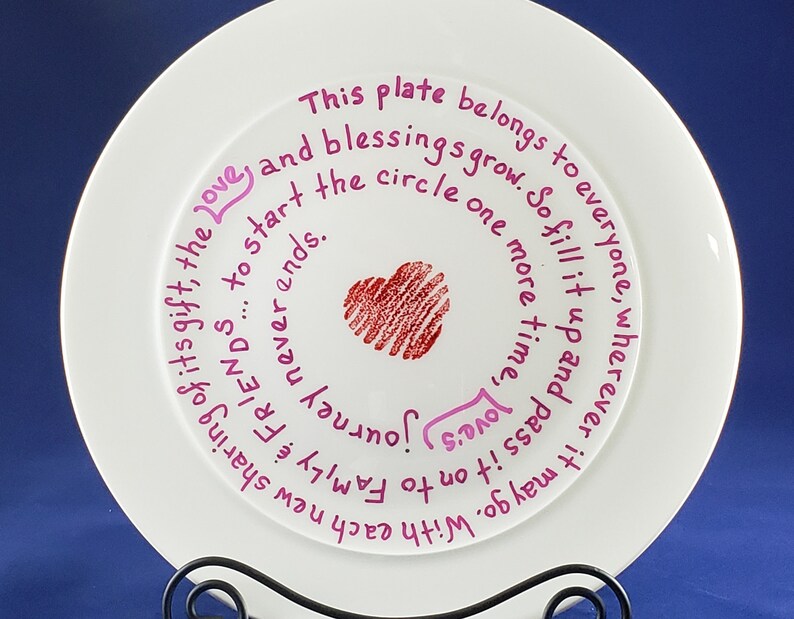 This plate belongs to everyone, wherever it may go. With each new sharing of its gift, the love and blessings grow. So fill it up and pass it on to FAMILY & FRIENDS ... to start the circle one more time, love's journey never ends.